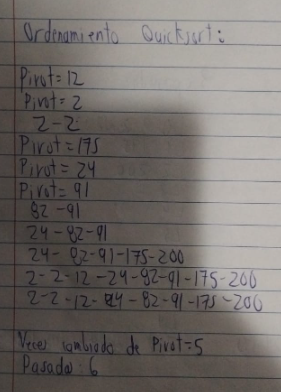 Ordenamiento Quicksort:
Pivot = 12
Pivot = 2
2 - 2
Pivot = 175
Pivot = 24
Pivot = 91
82 - 91
24 - 82 - 91
24 - 82 - 91 - 175 - 200
2 - 2 - 12 - 24 - 82 - 91 - 175 - 200
2 - 2 - 12 - 24 - 82 - 91 - 175 - 200
Veces cambiado de Pivot = 5
Pasadas: 6